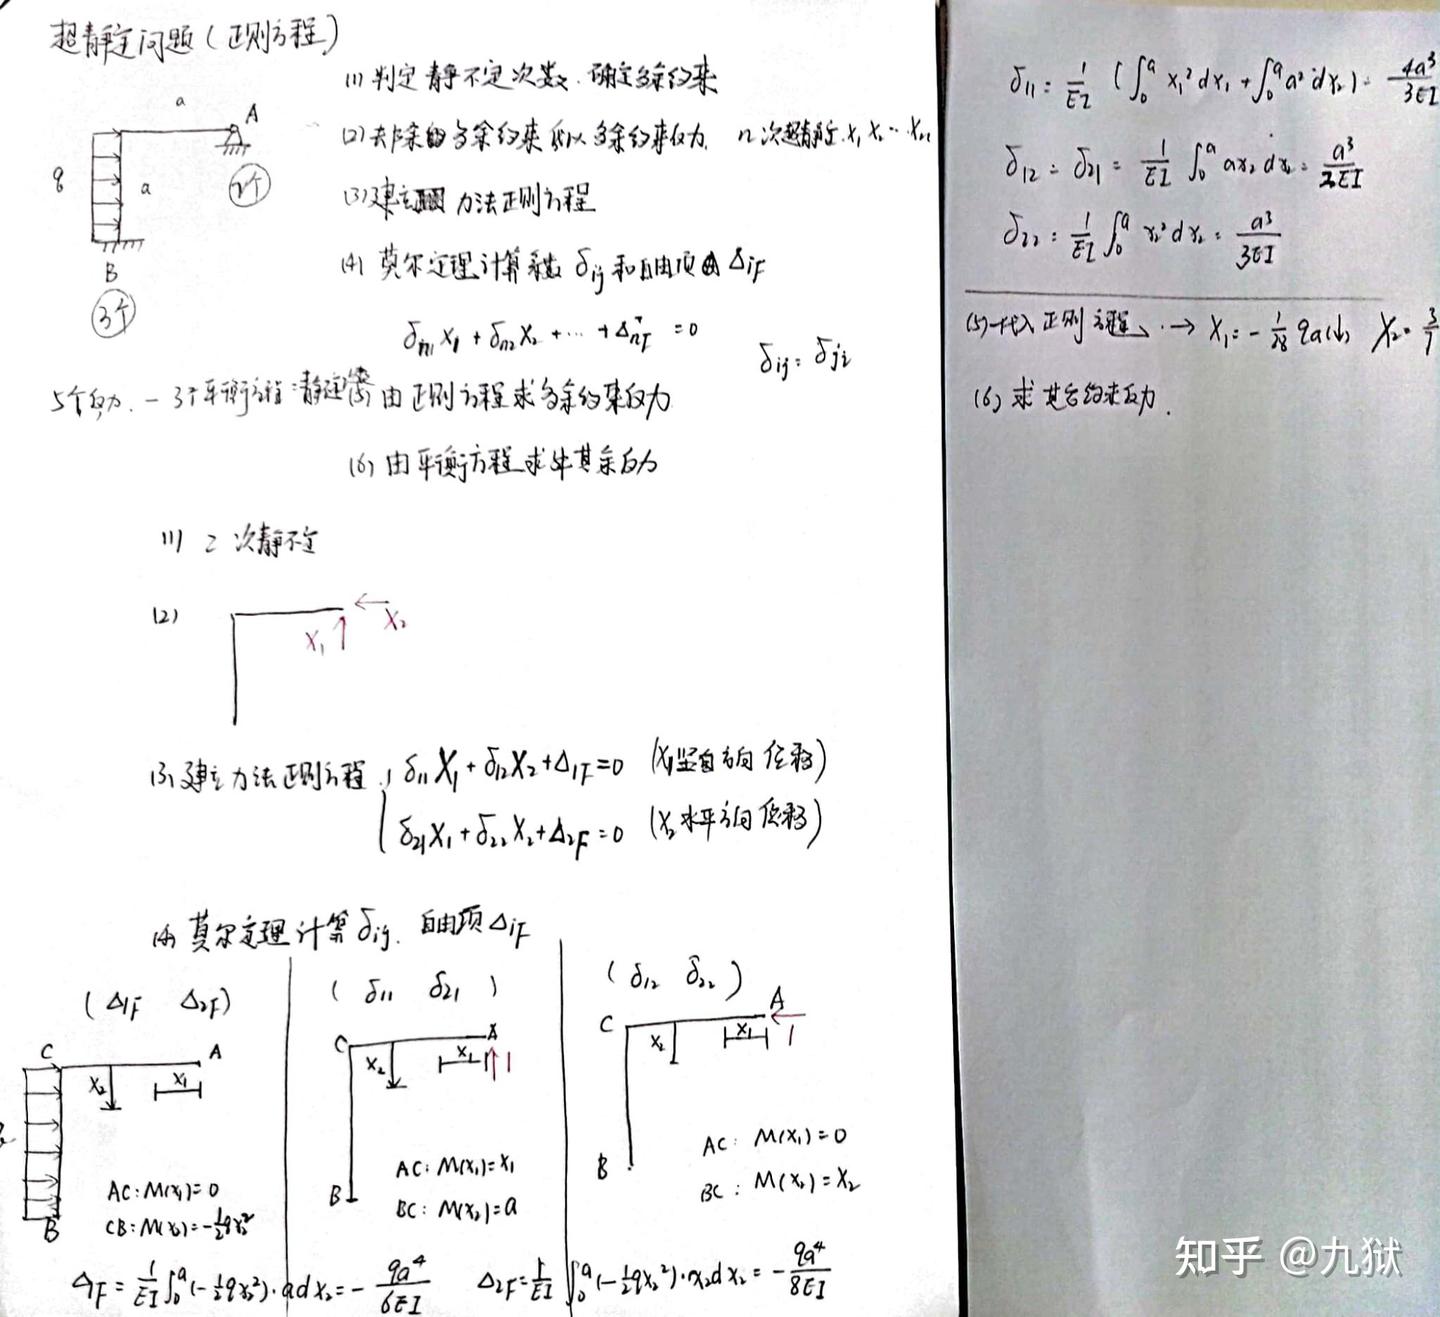 超静定问题（正则方程）
(1) 判定静不定次数. 确定多余约束
(2) 去除多余约束 以多余约束反力. n次超静定. X₁ X₂ … Xₙ
(3) 建立 力法正则方程
(4) 莫尔定理计算系数 δij 和自由项 ΔiF
δn1 X1 + δn2 X2 + … + ΔnF = 0
δij = δji
(5) 由正则方程求多余约束反力
(6) 由平衡方程求 其余反力
a
A
q
a
2个
B
3个
5个反力. – 3个平衡方程 = 静定
(1) 2 次静不定
(2)
X₁
X₂
(3) 建立力法正则方程
δ11 X1 + δ12 X2 + Δ1F = 0 (X₁竖直方向位移)
δ21 X1 + δ22 X2 + Δ2F = 0 (X₂水平方向位移)
(4) 莫尔定理计算 δij. 自由项 ΔiF
(Δ1F Δ2F)
C
A
X₂
X₁
B
AC: M(x₁) = 0
CB: M(x₂) = -½qx₂²
(δ11 δ21)
C
A
X₂
X₁
1
B
AC: M(x₁) = x₁
BC: M(x₂) = a
(δ12 δ22)
C
A
X₂
X₁
1
B
AC: M(x₁) = 0
BC: M(x₂) = x₂
Δ1F = 1/EI ∫₀ᵃ (-½qx₂²)·a dx₂ = - qa⁴/6EI
Δ2F = 1/EI ∫₀ᵃ (-½qx₂²)·x₂ dx₂ = - qa⁴/8EI
δ11 = 1/EI (∫₀ᵃ x₁² dx₁ + ∫₀ᵃ a² dx₂) = 4a³/3EI
δ12 = δ21 = 1/EI ∫₀ᵃ ax₂ dx₂ = a³/2EI
δ22 = 1/EI ∫₀ᵃ x₂² dx₂ = a³/3EI
(5) 代入正则方程 → X₁ = - 1/28 qa(↓) X₂ = 3/
(6) 求其余约束反力.
知乎 @九狱